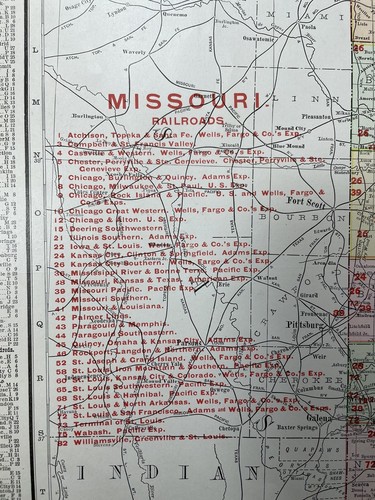 MISSOURI.
RAILROADS
1 Atchison, Topeka & Santa Fe. Wells, Fargo & Co.'s Exp.
3 Campbell & St. Francis Valley.
5 Cassville & Western. Wells, Fargo & Co.'s Exp.
Chester, Perryville & Ste. Genevieve. Chester, Perryville & Ste.
Genevieve Exp.
Chicago, Burlington & Quincy. Adams Exp.
Chicago, Milwaukee & St. Paul. U. S. Exp.
Chicago, Rock Island & Pacific. U. S. and Wells, Fargo &
Co.'s Exps.
10 Chicago Great Western. Wells, Fargo & Co.'s Exp.
12 Chicago & Alton. U. S. Exp.
15 Deering Southwestern
21 Illinois Southern. Adams Exp.
22 Iowa & St. Louis. Wells, Fargo & Co.'s Exp.
24 Kansas City, Clinton & Springfield. Adams Exp.
26 Kansas City Southern. Wells, Fargo & Co.'s Exp.
Mississippi River & Bonne Terre. Pacific Exp.
38 Missouri, Kansas & Texas. American Exp.
39 Missouri Pacific. Pacific Exp.
40 Missouri Southern.
Missouri & Louisiana.
42 Palmer
43 Paragould & Memphis.
Paragould Southeastern.
Quincy, Omaha & Kansas City. Adams Exp.
Rockport, Langdon & Northern. Adams Exp.
52 St. Joseph & Grand Island. Wells, Fargo & Co.'s Exp.
58 St. Louis, Iron Mountain & Southern. Pacific Exp.
60 St. Louis, Kansas City & Colorado. Wells, Fargo & Co.'s Exp.
65 St. Louis Southwestern. Pacific Exp.
68 St. Louis & Hannibal. Pacific Exp.
St. Louis & North Arkansas. Wells, Fargo & Co.'s Exp.
St. Louis & San Francisco. Adams and Wells, Fargo & Co.'s Exps.
Terminal of St. Louis.
Wabash. Pacific Exp.
82 Williamsville, Greenville & St. Louis.
Lyndon
Quenemo
Osawatomie
Paola
MIAMI
Waverly
Burlington
LINN
Pleasanton
Mound City
Blue Mound
Fort Scott
BOURBON
Erie
Walnut
Girard
Pittsburg
Weir
Parsons
CHEROKEE
Oswego
Chetopa
Baxter Springs
Galena
QUAPAW
INDIAN
L
M
N
O
P
Q
R
S
T